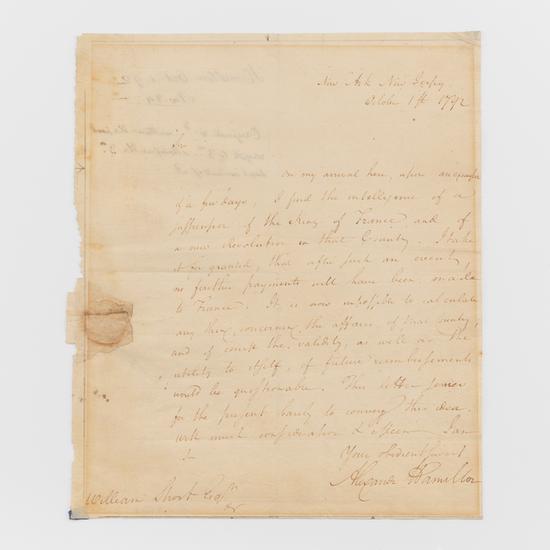 New Ark New Jersey
October 1st 1792
On my arrival here, upon an excursion
of a few days, I find the intelligence of a
suspension of the King of France and of
a new Revolution in that Country. I take
it for granted, that after such an event,
no further payments will have been made
to France. It is now impossible to calculate
any thing concerning the affairs of that country,
and of course the validity, as well as the
utility to itself, of future reimbursements
would be questionable. This letter serves
for the present barely to convey this idea.
With much consideration & esteem I am
Sir
Your obedient servant
Alexander Hamilton
William Short Esqr